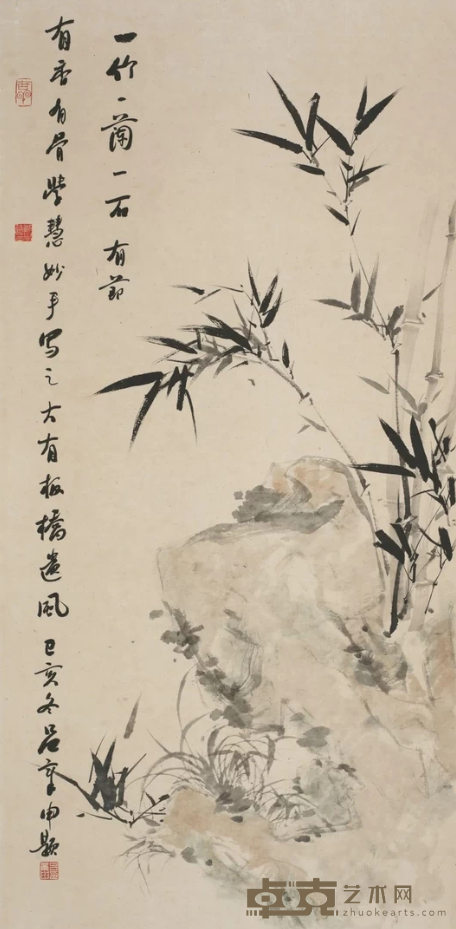 一竹一蘭一石有節
有香有骨 慧妙手写之大有板橋遺風己亥冬吕 申题
卓克艺术网
zhuokearts.com